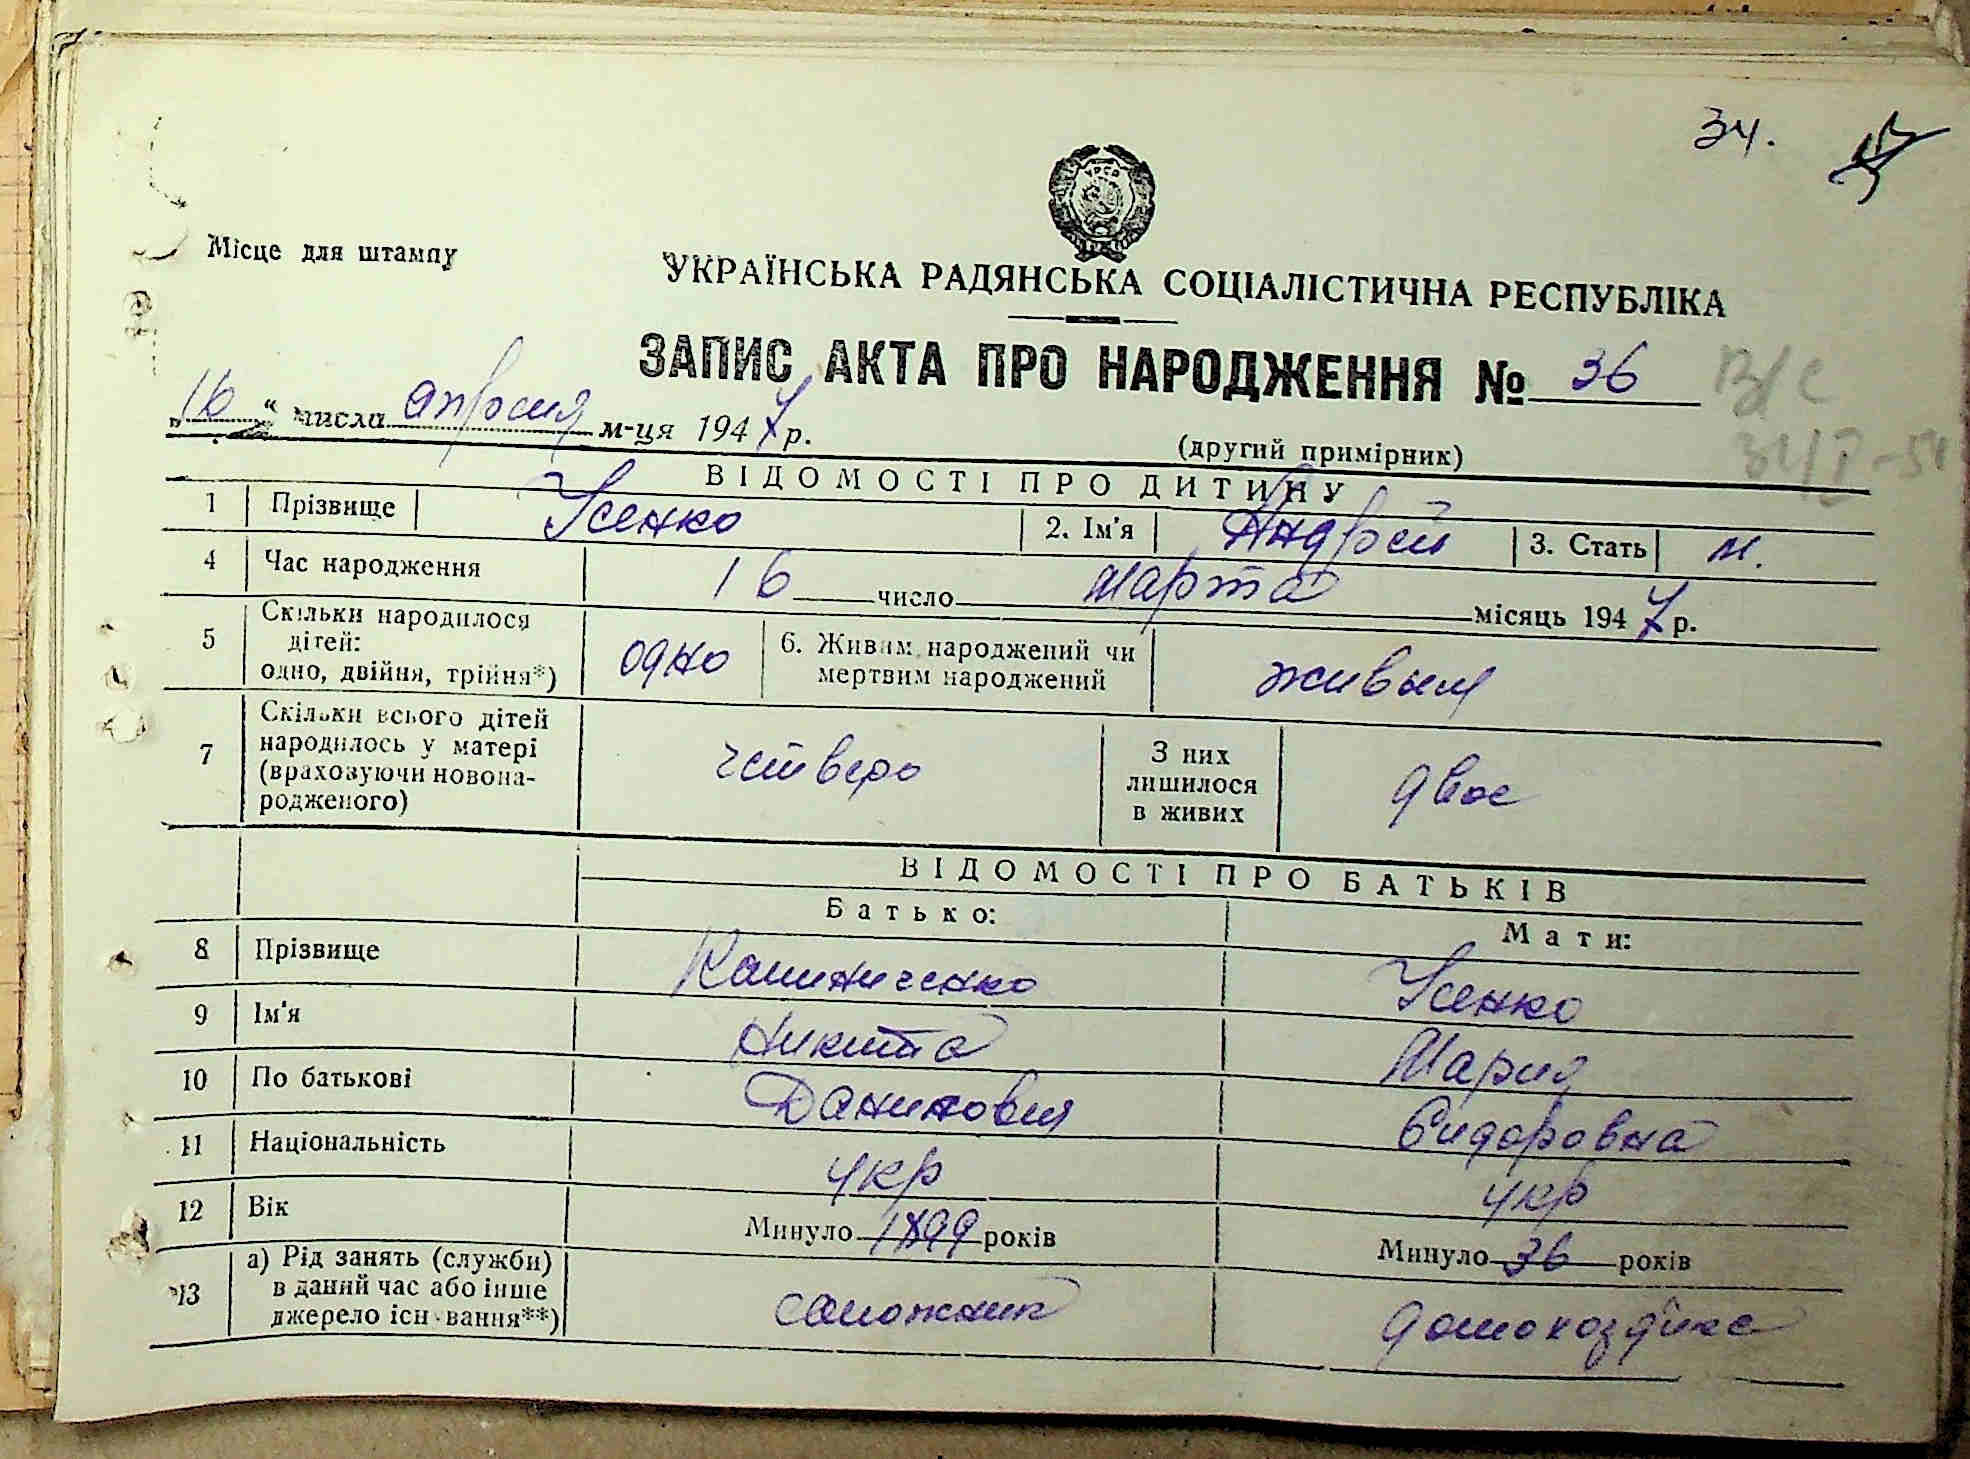 34.
УРСР
Місце для штампу
УКРАЇНСЬКА РАДЯНСЬКА СОЦІАЛІСТИЧНА РЕСПУБЛІКА
ЗАПИС АКТА ПРО НАРОДЖЕННЯ № 36
В/С
„16“ числа апреля м-ця 1947 р.
(другий примірник)
ВІДОМОСТІ ПРО ДИТИНУ
1 Прізвище Усенко 2. Ім'я Андрей 3. Стать м.
4 Час народження 16 число марта місяць 1947 р.
5 Скільки народилося дітей: одно, двійня, трійня*) одно 6. Живим народжений чи мертвим народжений живым
7 Скільки всього дітей народилось у матері (враховуючи новонародженого) четверо З них лишилося в живих двое
ВІДОМОСТІ ПРО БАТЬКІВ
Батько: Мати:
8 Прізвище Калиниченко Усенко
9 Ім'я Никита Мария
10 По батькові Данилович Сидоровна
11 Національність укр укр
12 Вік Минуло 1899 років Минуло 36 років
13 а) Рід занять (служби) в даний час або інше джерело існування**) сапожник домохозяйка